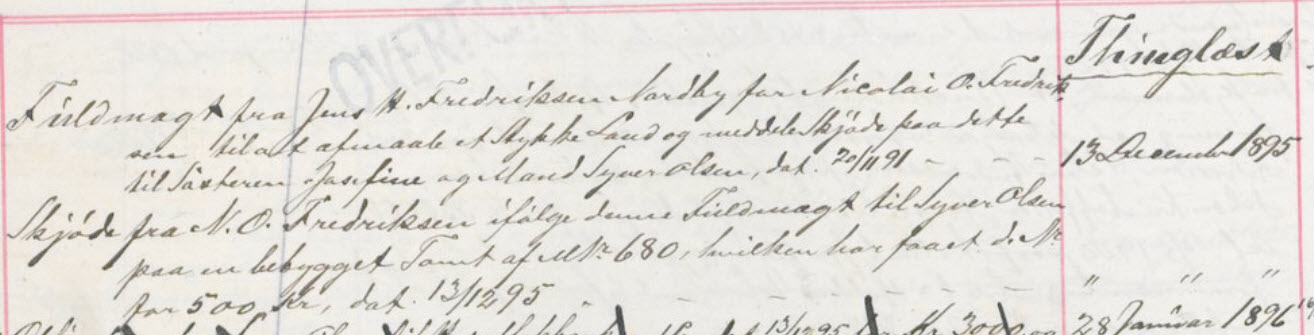 OVERF
Thinglæst
Fuldmagt fra Jens H. Fredriksen Nordby for Nicolai O. Fredrik-
sen til at afmaale et Stykke Land og meddele Skjøde paa dette
til Søsteren Josefine og Mand Syver Olsen, dat. 20/11 91 - - 13 December 1895
Skjøde fra N. O. Fredriksen ifølge denne Fuldmagt til Syver Olsen
paa en bebygget Tomt af MNr 680, hvilken har faaet d. Nr
for 500 Kr, dat. 13/12 95 - - - " " "
13/12 95 Kr. 3000 og 28 Januar 1896